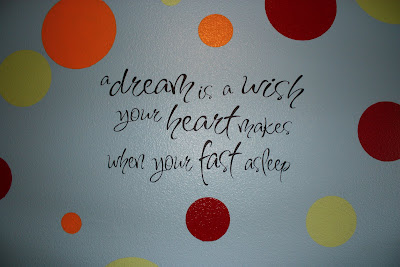 a dream is a wish
your heart makes
when your fast asleep